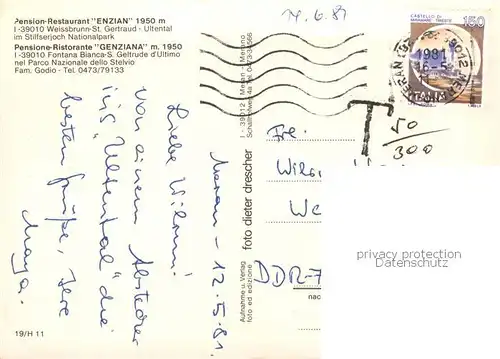 Pension-Restaurant "ENZIAN" 1950 m
I-39010 Weissbrunn-St. Gertraud - Ultental
im Stilfserjoch Nationalpark
Pensione-Ristorante "GENZIANA" m. 1950
I-39010 Fontana Bianca-S. Geltrude d'Ultimo
nel Parco Nazionale dello Stelvio
Fam. Godio - Tel. 0473/79133
Meran - 12.5.81.
Liebe Wilmi!
Von einem Abstecher
ins "Ultental" die
besten Grüße, Ihre
Maya.
19/H 11
foto dieter drescher
I - 39012 Meran - Merano
Aufnahme u. Verlag
foto ed edizione
14.6.81
CASTELLO DI
150
1981
ITALIA
T
50
300
Frl.
DDR-7
privacy protection
Datenschutz